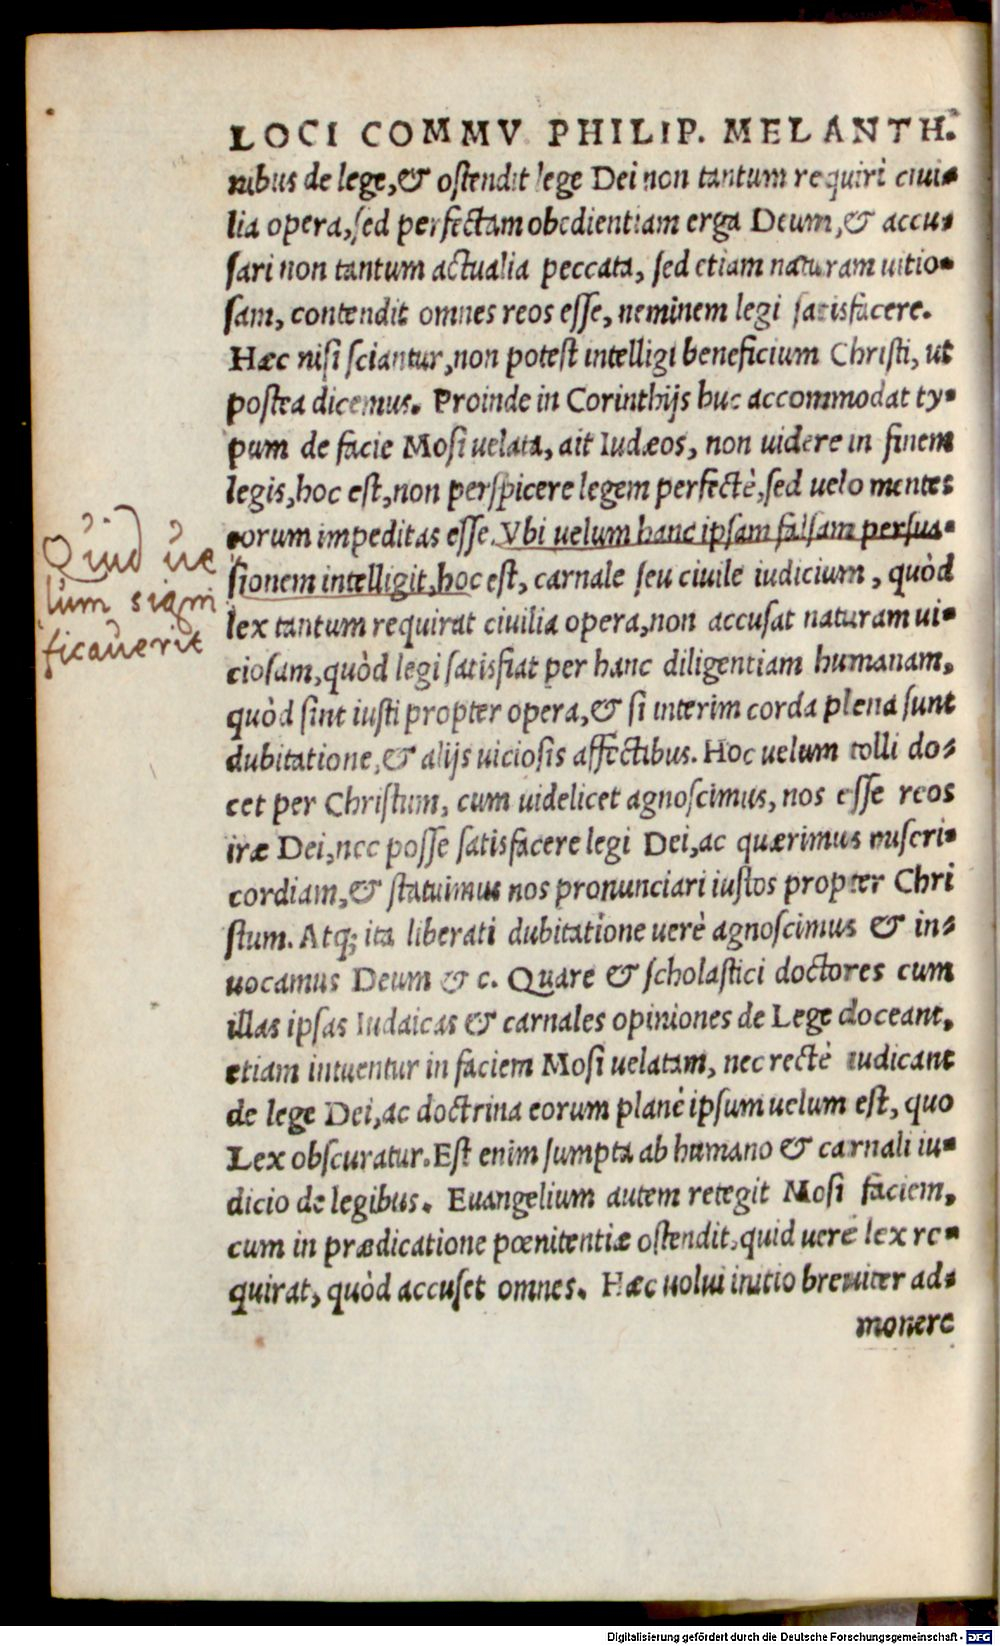 LOCI COMMV PHILIP. MELANTH.
nibus de lege, & ostendit lege Dei non tantum requiri ciui-
lia opera, sed perfectam obedientiam erga Deum, & accu-
sari non tantum actualia peccata, sed etiam naturam uitio-
sam, contendit omnes reos esse, neminem legi satisfacere.
Hæc nisi sciantur, non potest intelligi beneficium Christi, ut
postea dicemus. Proinde in Corinthijs huc accommodat ty-
pum de facie Mosi uelata, ait Iudæos, non uidere in finem
legis, hoc est, non perspicere legem perfectè, sed uelo mentes
eorum impeditas esse. Vbi uelum hanc ipsam falsam persua-
sionem intelligit, hoc est, carnale seu ciuile iudicium, quòd
lex tantum requirat ciuilia opera, non accusat naturam ui-
ciosam, quòd legi satisfiat per hanc diligentiam humanam,
quòd sint iusti propter opera, & si interim corda plena sunt
dubitatione, & alijs uiciosis affectibus. Hoc uelum tolli do-
cet per Christum, cum uidelicet agnoscimus, nos esse reos
iræ Dei, nec posse satisfacere legi Dei, ac quærimus miseri-
cordiam, & statuimus nos pronunciari iustos propter Chri
stum. Atq; ita liberati dubitatione uerè agnoscimus & in-
uocamus Deum & c. Quare & scholastici doctores cum
illas ipsas Iudaicas & carnales opiniones de Lege doceant,
etiam intuentur in faciem Mosi uelatam, nec rectè iudicant
de lege Dei, ac doctrina eorum planè ipsum uelum est, quo
Lex obscuratur. Est enim sumpta ab humano & carnali iu-
dicio de legibus. Euangelium autem retegit Mosi faciem,
cum in prædicatione pœnitentiæ ostendit, quid uerè lex re-
quirat, quòd accuset omnes. Hæc uolui initio breuiter ad-
monere
Quid ue
lum signi
ficauerit
Digitalisierung gefördert durch die Deutsche Forschungsgemeinschaft - DFG